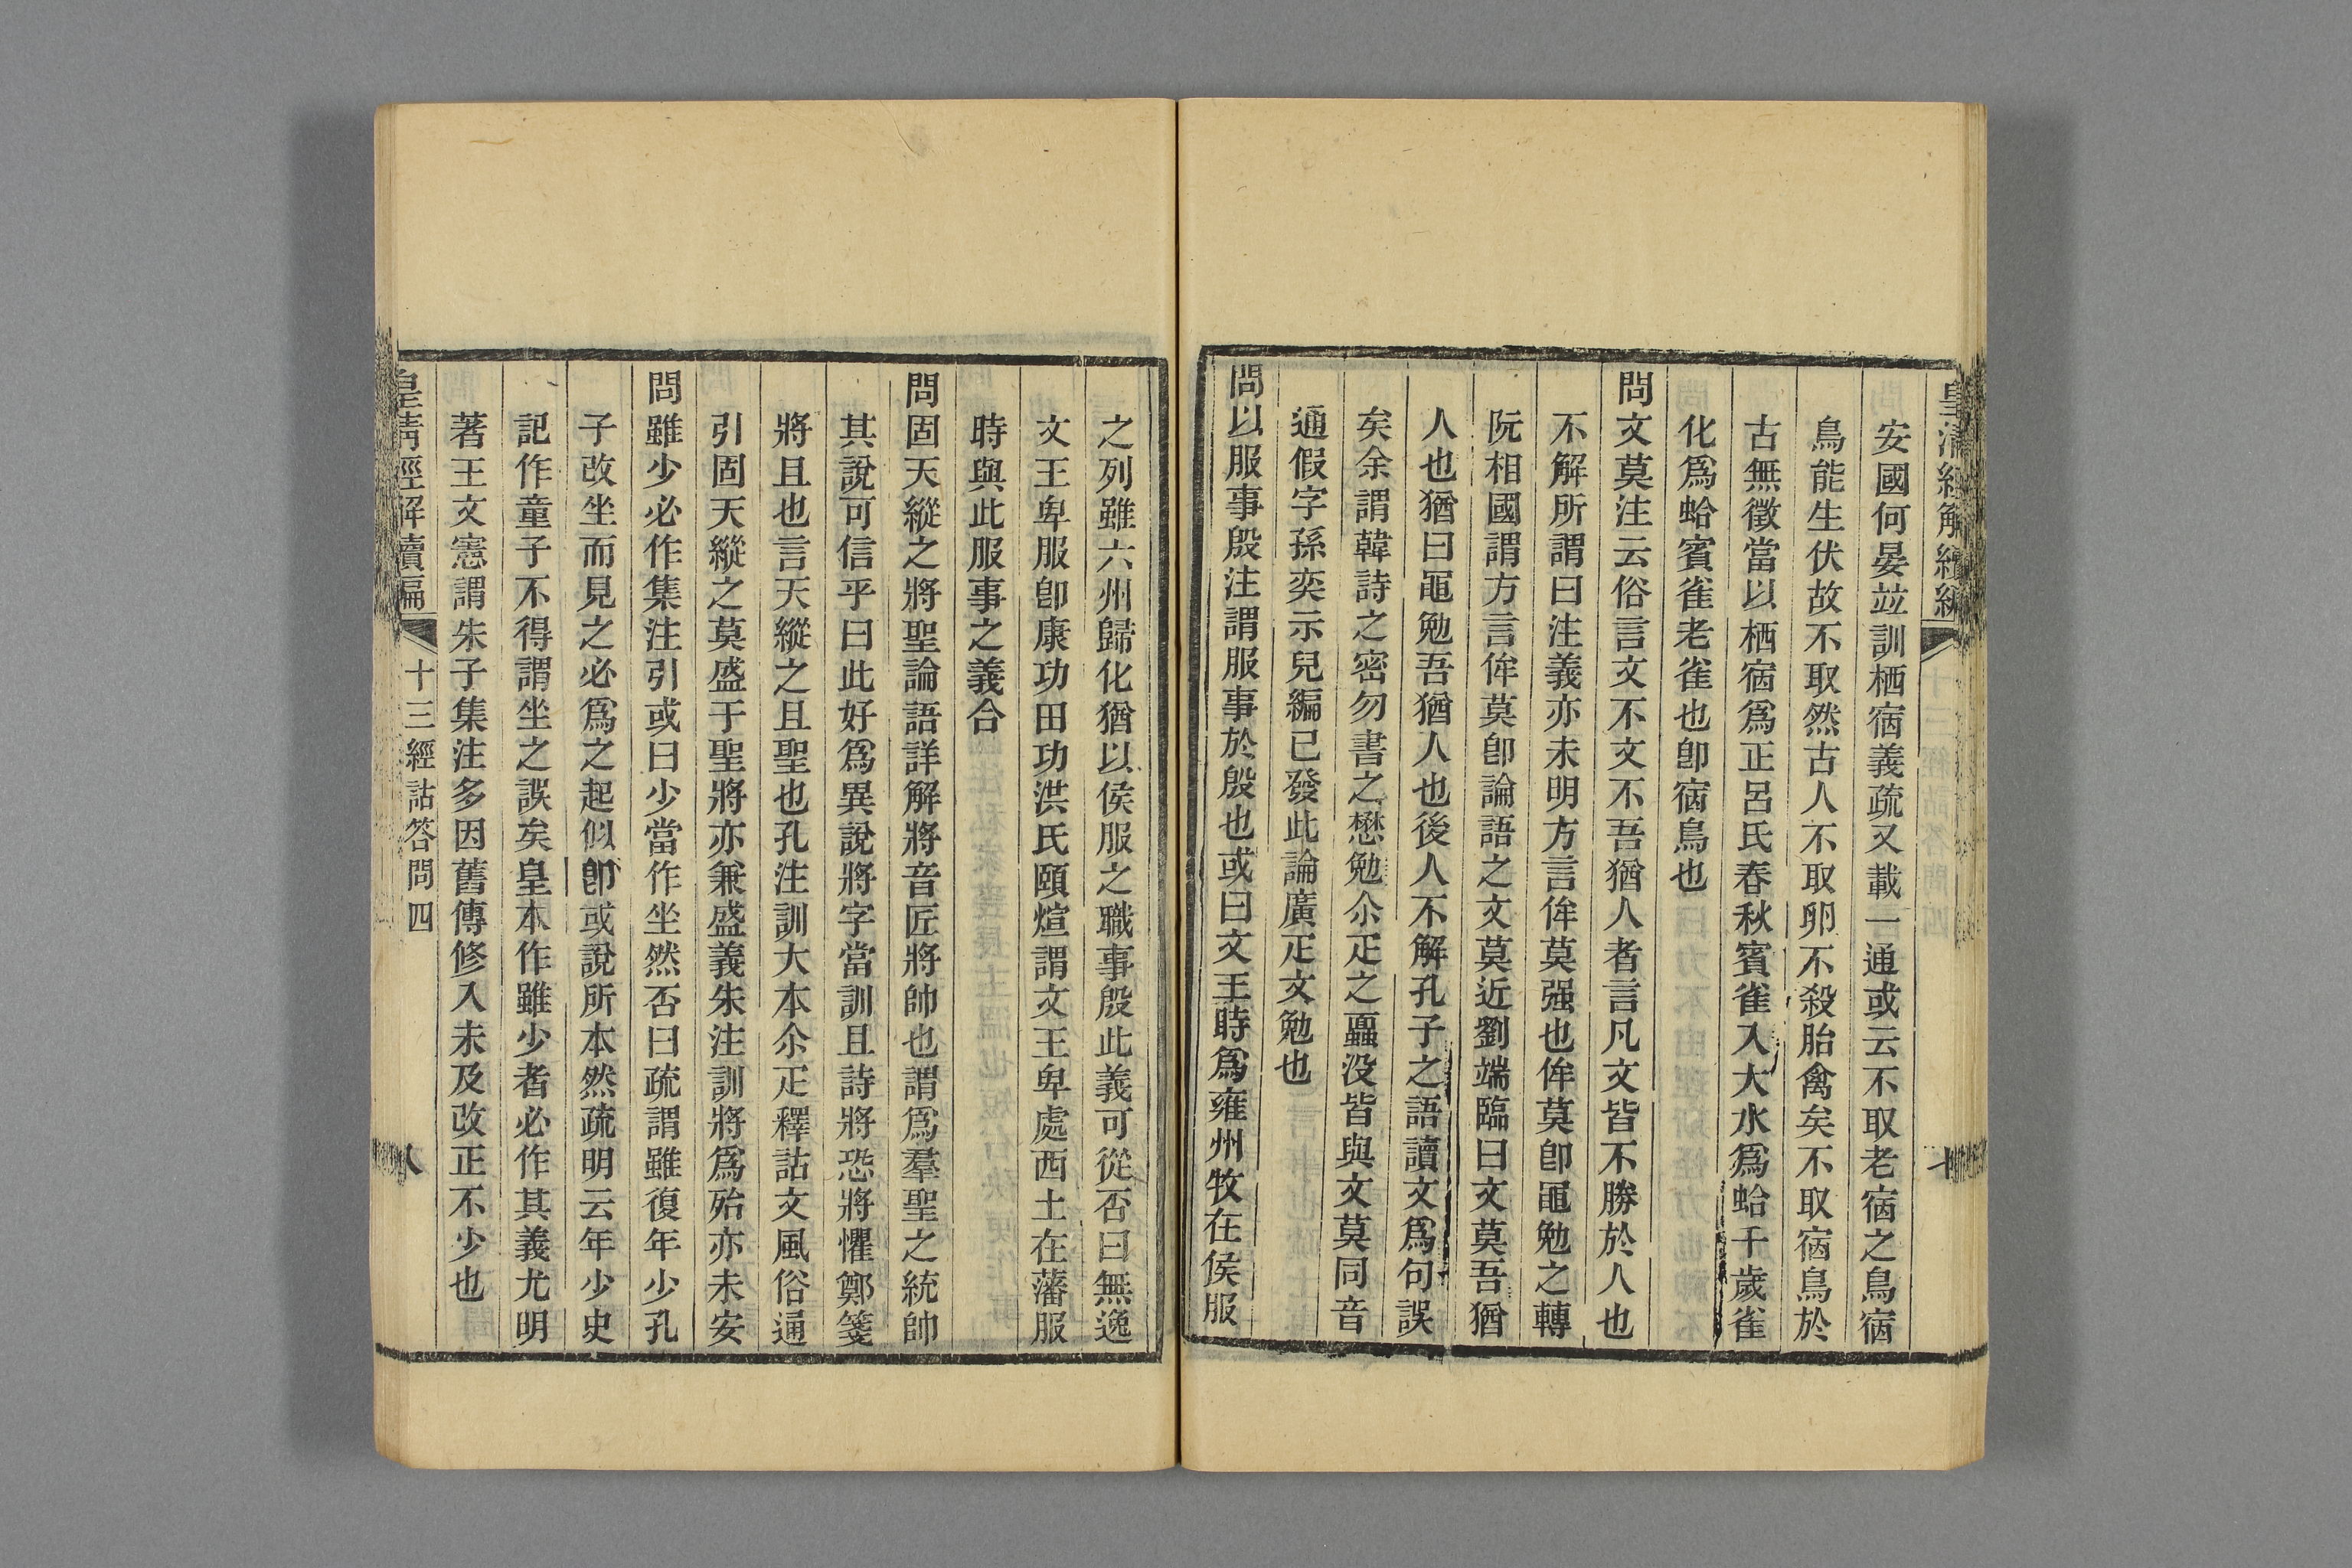 皇清經解續編
安國何晏竝訓栖宿義疏又載一通或云不取老宿之鳥宿
鳥能生伏故不取然古人不取卵不殺胎禽矣不取宿鳥於
古無徵當以栖宿爲正呂氏春秋賓雀入大水爲蛤千歲雀
化爲蛤賓雀老雀也卽宿鳥也
問文莫注云俗言文不文不吾猶人者言凡文皆不勝於人也
不解所謂曰注義亦未明方言侔莫强也侔莫卽黽勉之轉
阮相國謂方言侔莫卽論語之文莫近劉端臨曰文莫吾猶
人也猶曰黽勉吾猶人也後人不解孔子之語讀文爲句誤
矣余謂韓詩之密勿書之懋勉尒疋之蠠没皆與文莫同音
通假字孫奕示兒編已發此論廣疋文勉也
問以服事殷注謂服事於殷也或曰文王時爲雍州牧在侯服
之列雖六州歸化猶以侯服之職事殷此義可從否曰無逸
文王卑服卽康功田功洪氏頤煊謂文王卑處西土在藩服
時與此服事之義合
問固天縱之將聖論語詳解將音匠將帥也謂爲羣聖之統帥
其說可信乎曰此好爲異說將字當訓且詩將恐將懼鄭箋
將且也言天縱之且聖也孔注訓大本尒疋釋詁文風俗通
引固天縱之莫盛于聖將亦兼盛義朱注訓將爲殆亦未安
問雖少必作集注引或曰少當作坐然否曰疏謂雖復年少孔
子改坐而見之必爲之起似卽或說所本然疏明云年少史
記作童子不得謂坐之誤矣皇本作雖少者必作其義尤明
著王文憲謂朱子集注多因舊傳修入未及改正不少也
皇清經解續編
十三經詁答問四
八